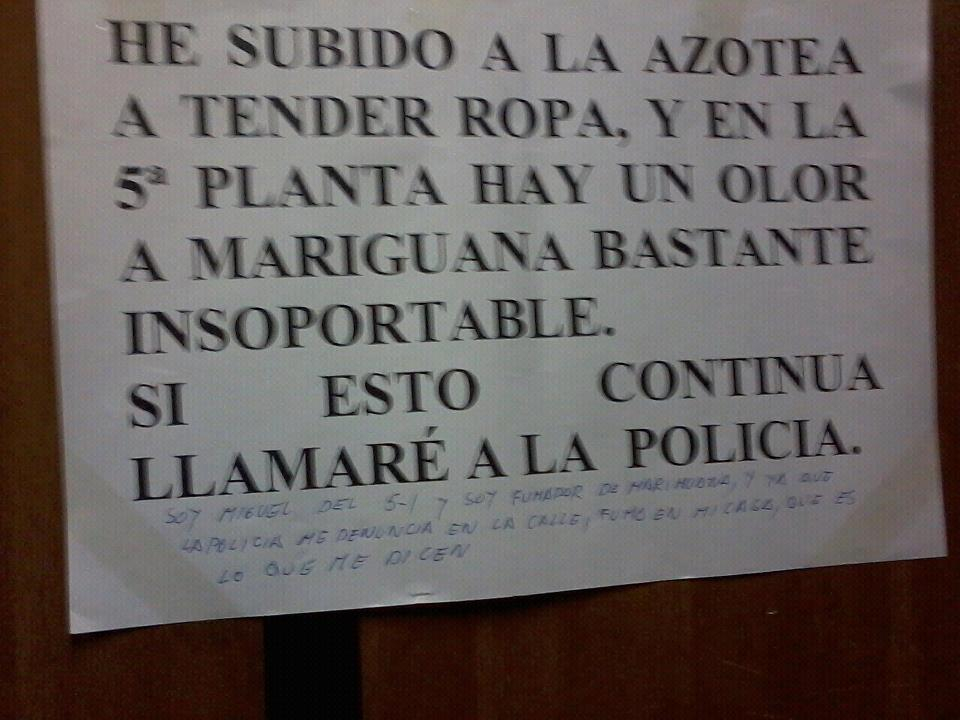 HE SUBIDO A LA AZOTEA
A TENDER ROPA, Y EN LA
5ª PLANTA HAY UN OLOR
A MARIGUANA BASTANTE
INSOPORTABLE.
SI ESTO CONTINUA
LLAMARÉ A LA POLICIA.
SOY MIGUEL DEL 5-1 Y SOY FUMADOR DE MARIHUANA, Y YA QUE
LA POLICIA ME DENUNCIA EN LA CALLE, FUMO EN MI CASA, QUE ES
LO QUE ME DICEN